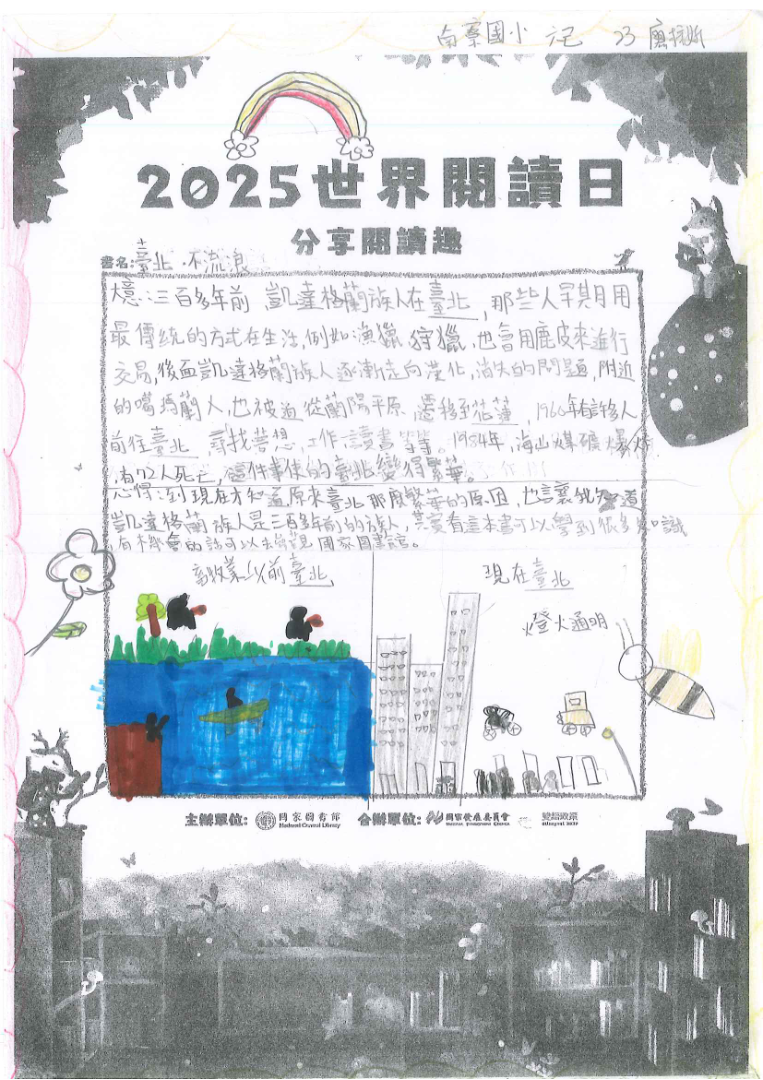 南寮國小 記 23
2025世界閱讀日
分享閱讀趣
書名:臺北不流浪
大意:三百多年前 凱達格蘭族人在臺北,那些人早期用
最傳統的方式在生活,例如漁獵、狩獵,也會用鹿皮來進行
交易,後面凱達格蘭族人逐漸走向漢化,消失的問題,附近
的噶瑪蘭人,也被迫從蘭陽平原 遷移至花蓮,1960年有許多人
前往臺北 尋找夢想,工作、讀書等等。1984年,海山煤礦爆炸
有72人死亡,這件事使的臺北變得繁華。
心得:到現在才知道原來臺北那麼繁華的原因,也讓我知道
凱達格蘭族人是三百多年前的族人,只要看這本書可以學到很多知識
有機會的話可以去 國家圖書館。
以前臺北 現在臺北
燈火通明
主辦單位: 國家圖書館 National Central Library 合辦單位: 國家發展委員會 National Development Council 雙語政策 Bilingual 2030